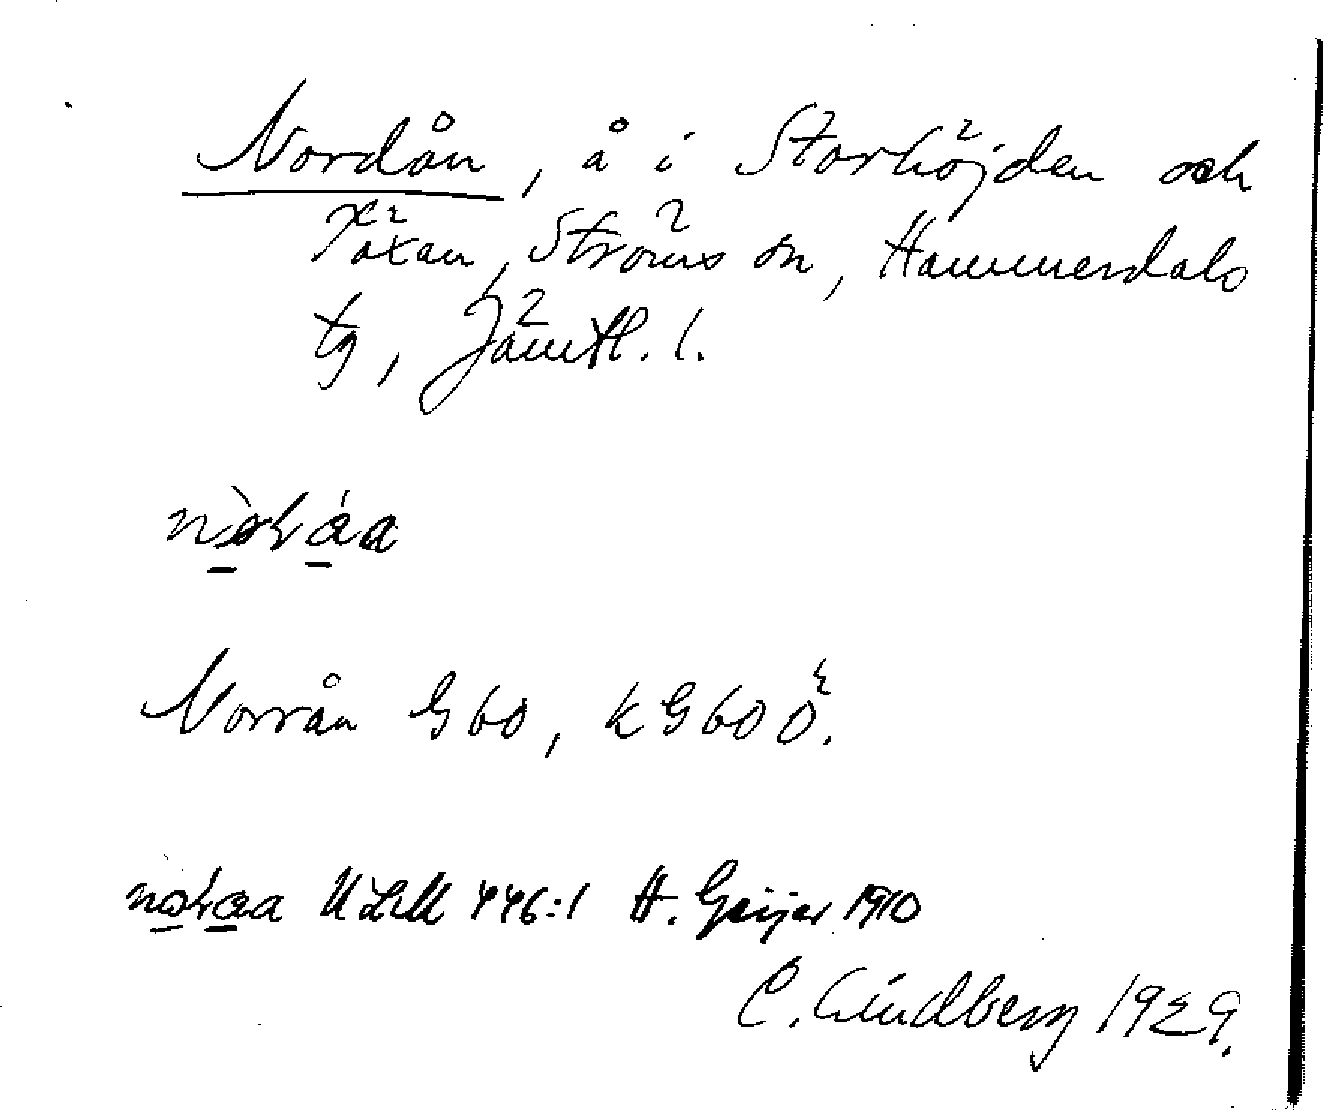 Nordån, å i Storhöjden och
Täxan, Ströms sn, Hammerdals
tg, Jämtl. l.
Norrån G60, kG60Ö.
ULMA 446:1 H. Geijer 1910
C. Lindberg 1929.